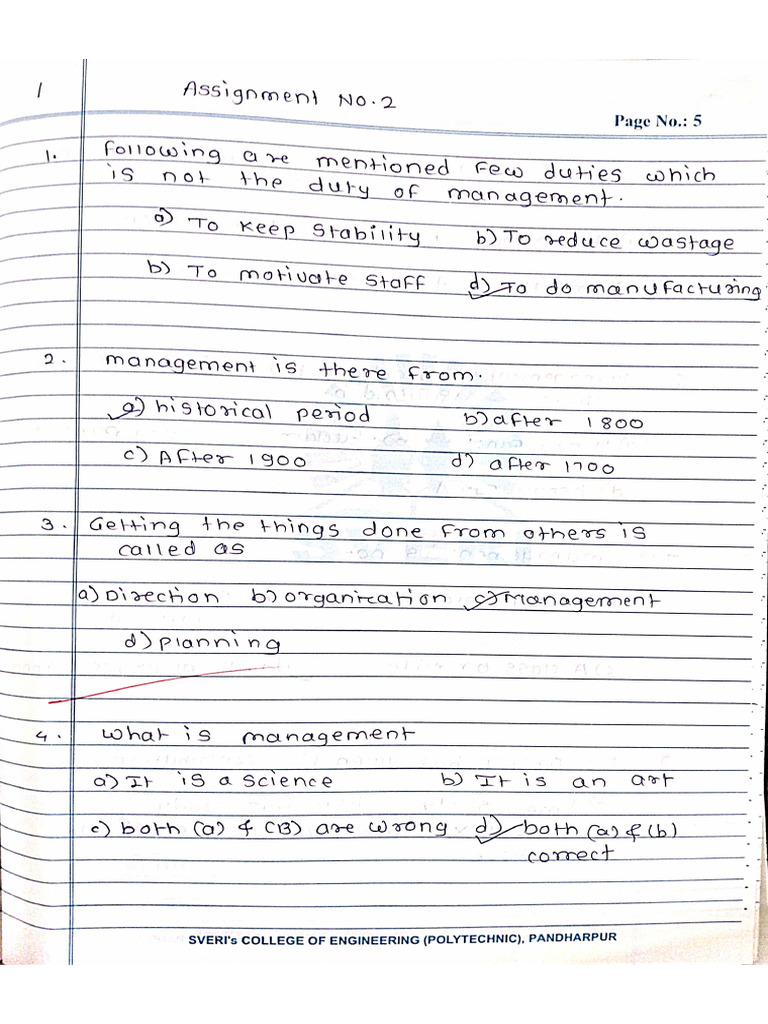 1 Assignment No. 2
Page No.: 5
1. Following are mentioned few duties which
is not the duty of management.
a) To keep stability b) To reduce wastage
b) To motivate staff d) To do manufacturing
2. management is there from.
a) historical period b) after 1800
c) After 1900 d) after 1700
3. Getting the things done from others is
called as
a) Direction b) organization c) Management
d) planning
4. what is management
a) It is a science b) It is an art
c) both (a) & (B) are wrong d) both (a) & (b)
correct
SVERI's COLLEGE OF ENGINEERING (POLYTECHNIC), PANDHARPUR